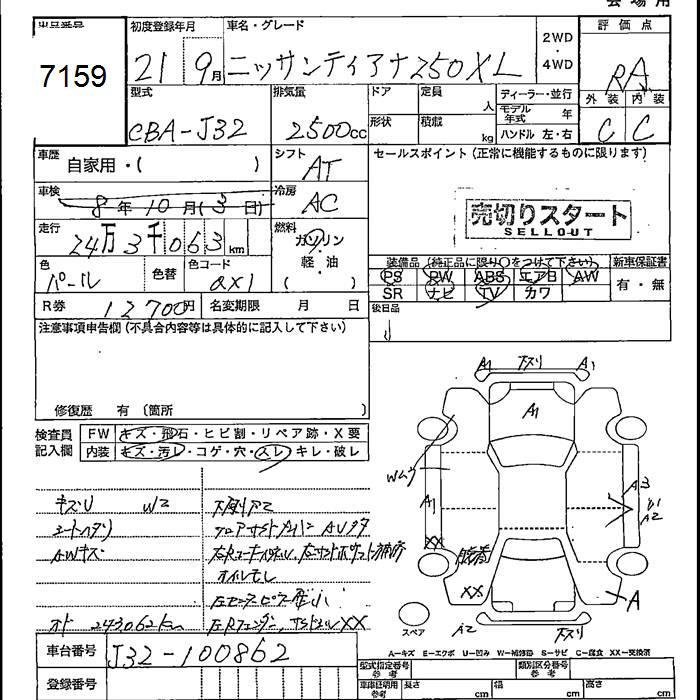 会場用
出品番号
7159
初度登録年月
21 9月
車名・グレード
ニッサンティアナ250XL
2WD
・
4WD
評価点
RA
外装 内装
C C
型式
CBA-J32
排気量
2500cc
ドア 定員 人
形状 積載 kg
ディーラー・並行
モデル年式 年
ハンドル 左・右
車歴
自家用・( )
シフト
AT
セールスポイント(正常に機能するものに限ります)
車検
8年10月(3日)
冷房
AC
売切りスタート
SELLOUT
走行
24万3千063km
燃料
ガソリン
軽・油
( )
色
パール
色替
色コード
QX1
装備品(純正品に限り○をつけて下さい)
新車保証書
PS PW ABS エアB AW
SR ナビ TV カワ
有・無
R券 12700円 名変期限 月 日
後日品
注意事項申告欄(不具合内容等は具体的に記入して下さい)
修復歴 有(箇所 )
検査員記入欄
FW キズ・飛石・ヒビ割・リペア跡・X要
内装 キズ・汚レ・コゲ・穴・スレ・キレ・破レ
キズU W2
シートハタリ
AWキズ
オイルモレ
オド 243062km
左Rフェンダー、サイドシルXX
A1 下スリ A1
A1
Wムラ
A1
A3
A2
XX
XX
A
スペア
A2 下スリ
A=キズ E=エクボ U=凹み W=補修跡 S=サビ C=腐食 XX=交換済
車台番号
J32-100862
登録番号
型式指定番号 参考
類別区分番号 参考
車庫証明用 参考 長さ cm 幅 cm 高さ cm